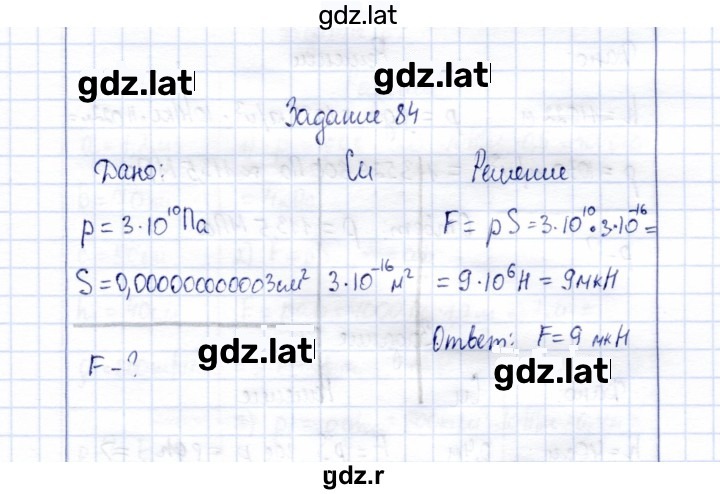 gdz.lat
gdz.lat gdz.lat
Задание 84
Дано: Си Решение
p = 3·10¹⁰Па F = pS = 3·10¹⁰·3·10⁻¹⁶ =
S = 0,000000000003см² 3·10⁻¹⁶м² = 9·10⁶Н = 9мкН
F - ? gdz.lat Ответ: F = 9 мкН
gdz.lat
gdz.r